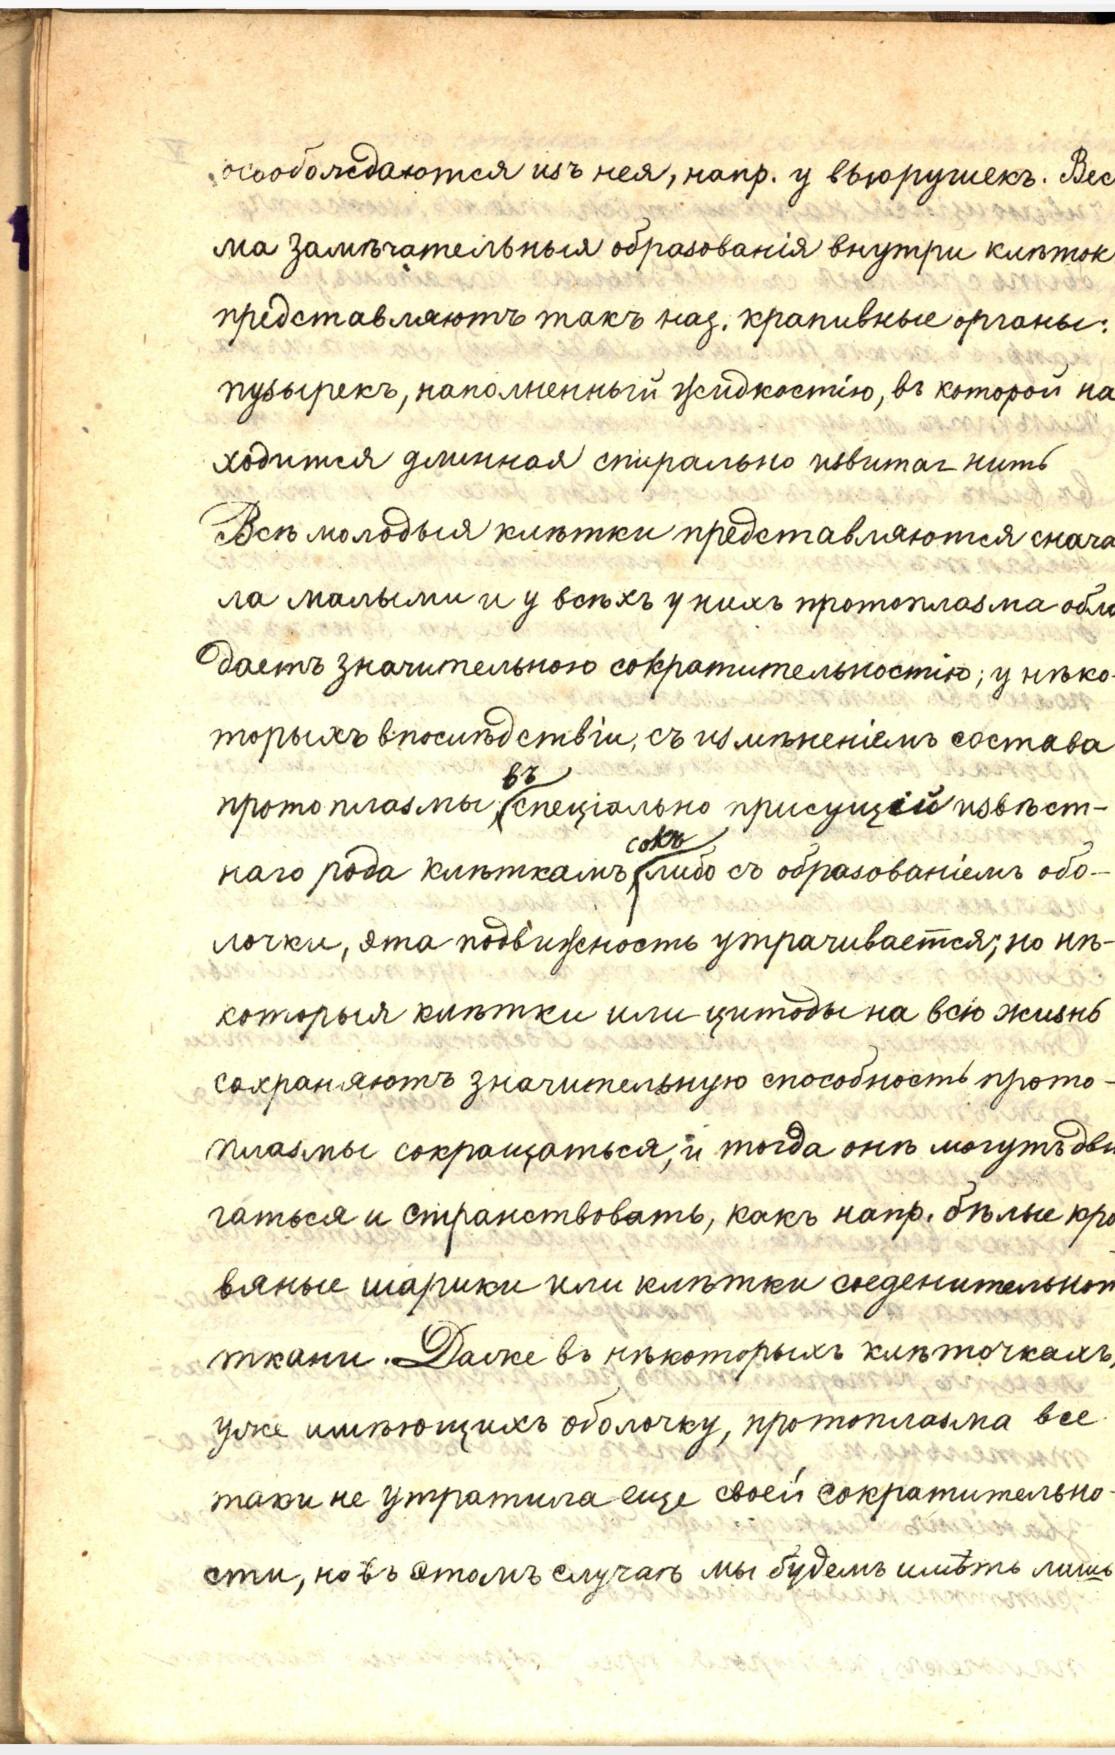 освобождаются изъ нея, напр. у вьюрушекъ. Вес
ма замѣчательныя образованія внутри клѣток
представляютъ такъ наз. крапивные органы:
пузырекъ, наполненный жидкостію, въ которой на
ходится длинная спирально извитая нить
Всѣ молодыя клѣтки представляются снача
ла малыми и у всѣхъ у нихъ протоплазма обла
даетъ значительною сократительностію; у нѣко-
торыхъ впослѣдствіи, съ измѣненіемъ состава
въ
протоплазмы, спеціально присущій извѣст-
сокъ
наго рода клѣткамъ, либо съ образованіемъ обо-
лочки, эта подвижность утрачивается; но нѣ-
которыя клѣтки или цитоды на всю жизнь
сохраняютъ значительную способность прото-
плазмы сокращаться, и тогда онѣ могутъ дви
гаться и странствовать, какъ напр. бѣлые кро
вяные шарики или клѣтки соеденительной
ткани. Далѣе въ нѣкоторыхъ клѣточкахъ,
уже имѣющихъ оболочку, протоплазма все
таки не утратила еще своей сократительно-
сти, но въ этомъ случаѣ мы будемъ имѣть лишь